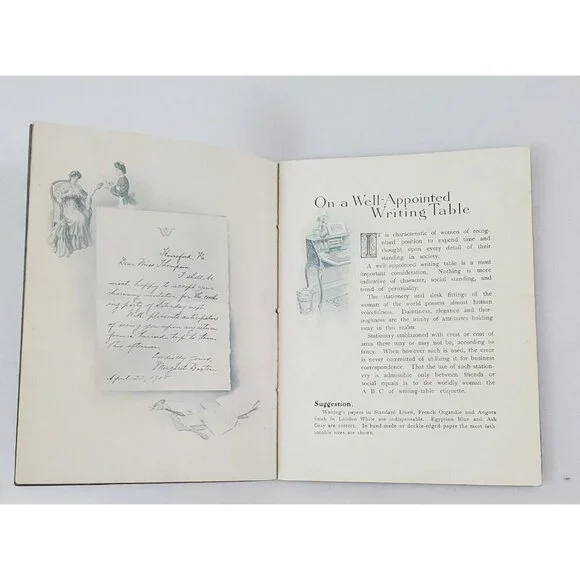 W
Dear Miss Thompson,
I shall be
most happy to accept your
charming invitation for the
party of Saturday next.
With pleasant anticipation
of seeing you upon my return
from a hurried trip to town
this afternoon.
Cordially yours,
Margaret Barton
April 22, 19
On a Well-Appointed
Writing Table
IT is characteristic of women of recog-
nized position to expend time and
thought upon every detail of their
standing in society.
A well-appointed writing table is a most
important consideration. Nothing is more
indicative of character, social standing, and
trend of personality.
The stationery and desk fittings of the
woman of the world possess almost human
voicefulness. Daintiness, elegance and thor-
oughness are the trinity of attributes holding
sway in this realm.
Stationery emblazoned with crest or coat of
arms there may or may not be, according to
fancy. When however such is used, the error
is never committed of utilizing it for business
correspondence. That the use of such station-
ery is admissible only between friends or
social equals is to the worldly woman the
A B C of writing-table etiquette.
Suggestion.
Writing's papers in Standard Linen, French Organdie and Angora
in London White are indispensable. Egyptian Blue and Ash
Gray are correct. In hand-made or deckle-edged paper the most fash-
ionable sizes are shown.